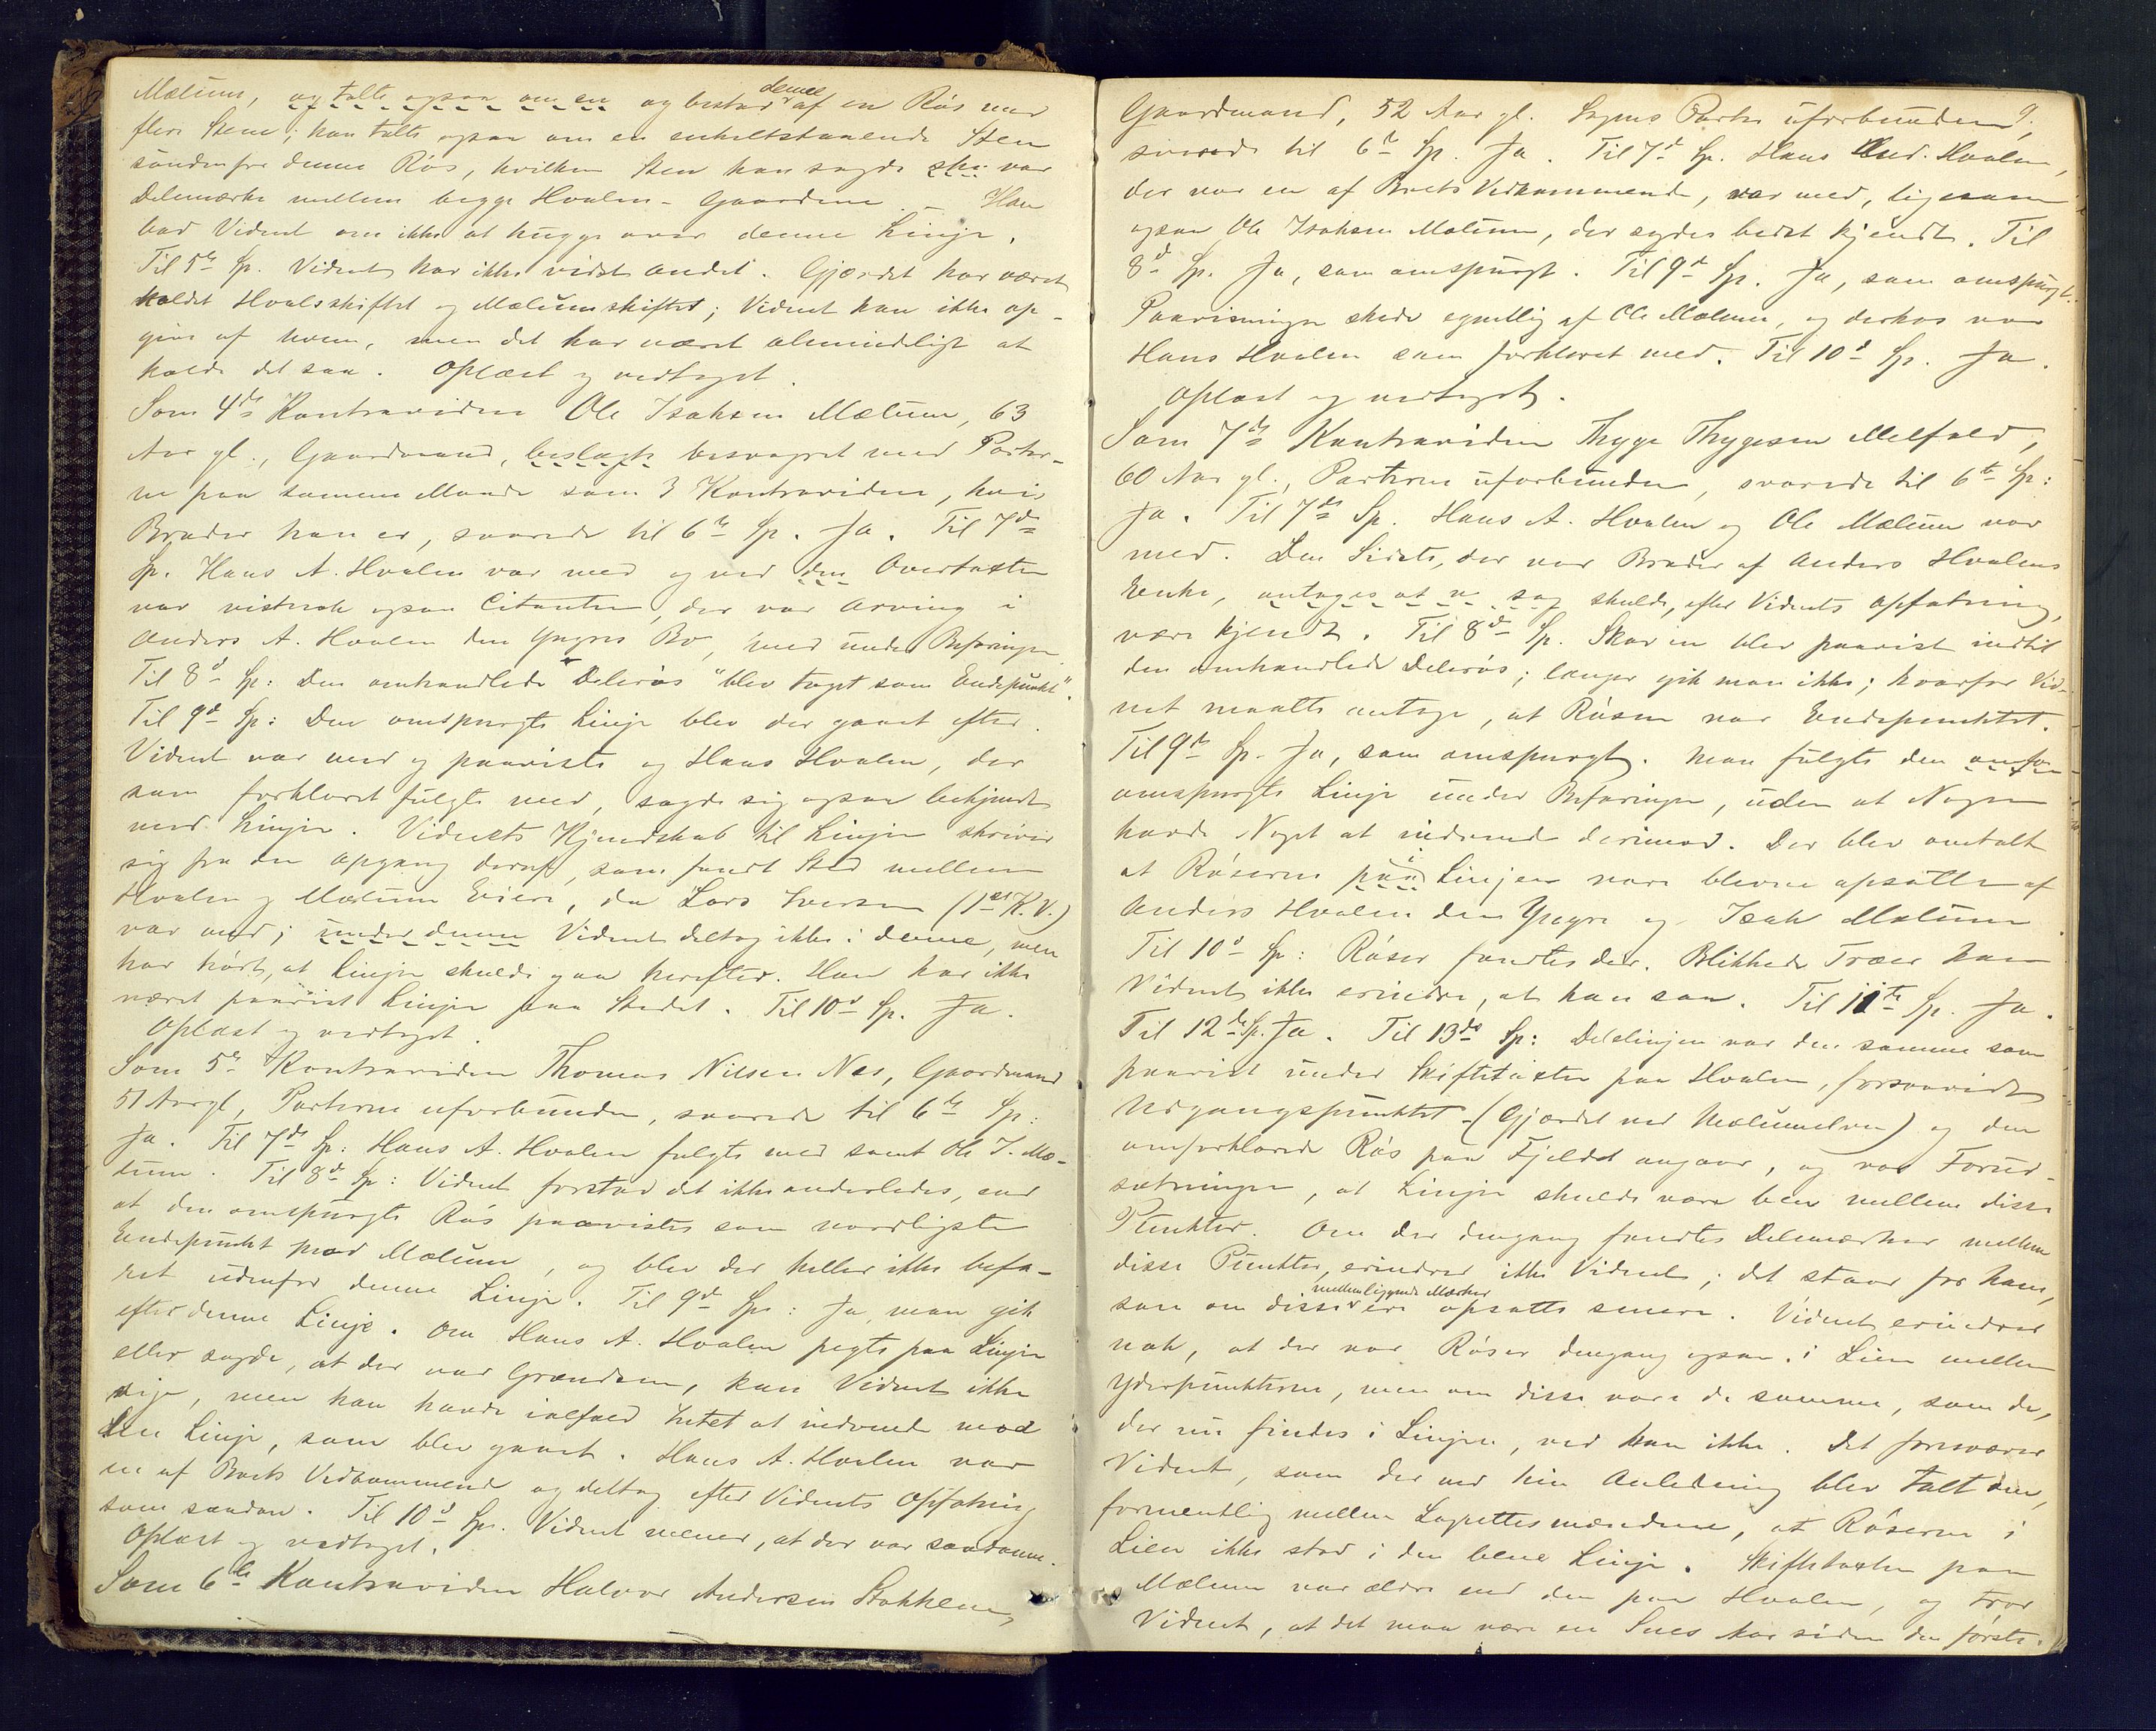 Mælum, og talte ogsaa om en og bestod denne af en Rös med
flere Stene; han talte ogsaa om en enkeltstaaende Sten
söndenfor denne Rös, hvilken Sten han sagde ske var
Delemærke mellem begge Hvalen-Gaardene. – Han
bad Vidnet om ikke at hugge over denne Linje.
Til 5te Sp. Vidnet har ikke vidst andet. Gjærdet har været
kaldt Hvalsskiftet og Mælumskiftet; Vidnet kan ikke op-
give af hvem, men det har været almindeligt at
kalde det saa. Oplæst og vedtaget.
Som 4de Kontraviden Ole Isaksen Mælum, 63
Aar gl., Gaardmand, beslægt besvogret med Parter-
ne paa samme Maade som 3 Kontraviden, hvis
Broder han er, svarede til 6te Sp. Ja. Til 7de
Sp. Hans A. Hvalen var med og ved den Overtaxten
var vistnok ogsaa Citanten, der var Arving i
Anders A. Hvalen den Yngres Bo, med under Befaringen.
Til 8de Sp: Den omhandlede Delerös "blev taget som Endepunkt".
Til 9de Sp: Den omspurgte Linje blev der gaaet efter.
Vidnet var med og paaviste og Hans Hvalen, der
som forklaret fulgte med, sagde sig ogsaa bekjendt
med Linjen. Vidnets Kjendskab til Linjen skriver
sig fra den Opgang deraf, som fandt Sted mellem
Hvalen og Mælum Eiere, da Lars Iversen (1ste K.V.)
var med; under denne Vidnet deltog ikke i denne, men
har hört, at Linjen skulde gaa herefter. Han har ikke
været paavist Linjen paa Stedet. Til 10de Sp. Ja.
Oplæst og vedtaget.
Som 5te Kontraviden Thomas Nilsen Næs, Gaardmand
51 Aar gl, Parterne uforbunden, svarede til 6te Sp:
Ja. Til 7de Sp: Hans A. Hvalen fulgte med samt Ole I. Mæ-
lum. Til 8de Sp: Vidnet forstod det ikke anderledes, end
at den omspurgte Rös paavistes som nordligste
Endepunkt mod Mælum, og blev der heller ikke befa-
ret udenfor denne Linje. Til 9de Sp: Ja, man gik
efter denne Linje. Om Hans A. Hvalen pegte paa Linjen
eller sagde, at der var Grændsen, kan Vidnet ikke
sige, men han havde ialfald Intet at indvende mod
den Linje, som blev gaaet. Hans A. Hvalen var
en af Boets Vedkommende og deltog efter Vidnets Opfatning
som saadan. Til 10de Sp. Vidnet mener, at der var saadanne.
Oplæst og vedtaget.
Som 6te Kontraviden Halvor Andersen Stokkem,
9.
Gaardmand, 52 Aar gl. Sagens Parter uforbunden,
svarede til 6te Sp. Ja. Til 7de Sp. Hans And. Hvalen,
der var en af Boets Vedkommende, var med, ligesom
ogsaa Ole Isaksen Mælum, der syntes bedst kjendt. Til
8de Sp. Ja, som omspurgt. Til 9de Sp. Ja, som omspurgt.
Paavisningen skede egentlig af Ole Mælum, og derhos var
Hans Hvalen som forklaret med. Til 10de Sp. Ja.
Oplæst og vedtaget.
Som 7de Kontraviden Thyge Thygesen Melfald,
60 Aar gl., Parterne uforbunden, svarede til 6te Sp:
Ja. Til 7de Sp. Hans A. Hvalen og Ole Mælum var
med. Den Sidste, der var Broder af Anders Hvalens
Enke, antoges at v sag skulde, efter Vidnets Opfatning,
være kjendt. Til 8de Sp. Skoven blev paavist indtil
den omhandlede Delerös; længer gik man ikke; hvorfor Vid-
net maatte antage, at Rösen var Endepunktet.
Til 9de Sp. Ja, som omspurgt. Man fulgte den omfor
omspurgte Linje under Befaringen, uden at Nogen
havde Noget at indvende derimod. Der blev omtalt
at Röserne paa i Linjen vare blevne opsatte af
Anders Hvalen den Yngre og Isak Mælum.
Til 10de Sp: Röser fandtes der. Blikkede Træer kan
Vidnet ikke erindre, at han saa. Til 11te Sp. Ja.
Til 12te Sp. Ja. Til 13de Sp: Delelinjen var den samme som
paavist under Skiftetaxten paa Hvalen, forsaavidt
Udgangspunktet (Gjærdet ved Mælumelven) og den
omforklarede Rös paa Fjeldet angaar, og var Forud-
sætningen, at Linjen skulde være ben mellem disse
Punkter. Om der dengang fandtes Delemærker mellem
disse Punkter, erindrer ikke Vidnet; det staar for ham,
som om disse mellemliggende Mærker ere opsatte senere. Vidnet erindrer
nok, at der var Röser dengang ogsaa i Lien mellem
Yderpunkterne, men om disse vare de samme, som de,
der nu findes i Linjen, ved han ikke. Det foresvæver
Vidnet, som der ved hin Anledning blev talt om,
formentlig mellem Lagrettesmændene, at Röserne i
Lien ikke stod i den bene Linje. Skiftetaxten paa
Mælum var ældre end den paa Hvalen, og tror
Vidnet, at det maa være en Snes Aar siden den förste.